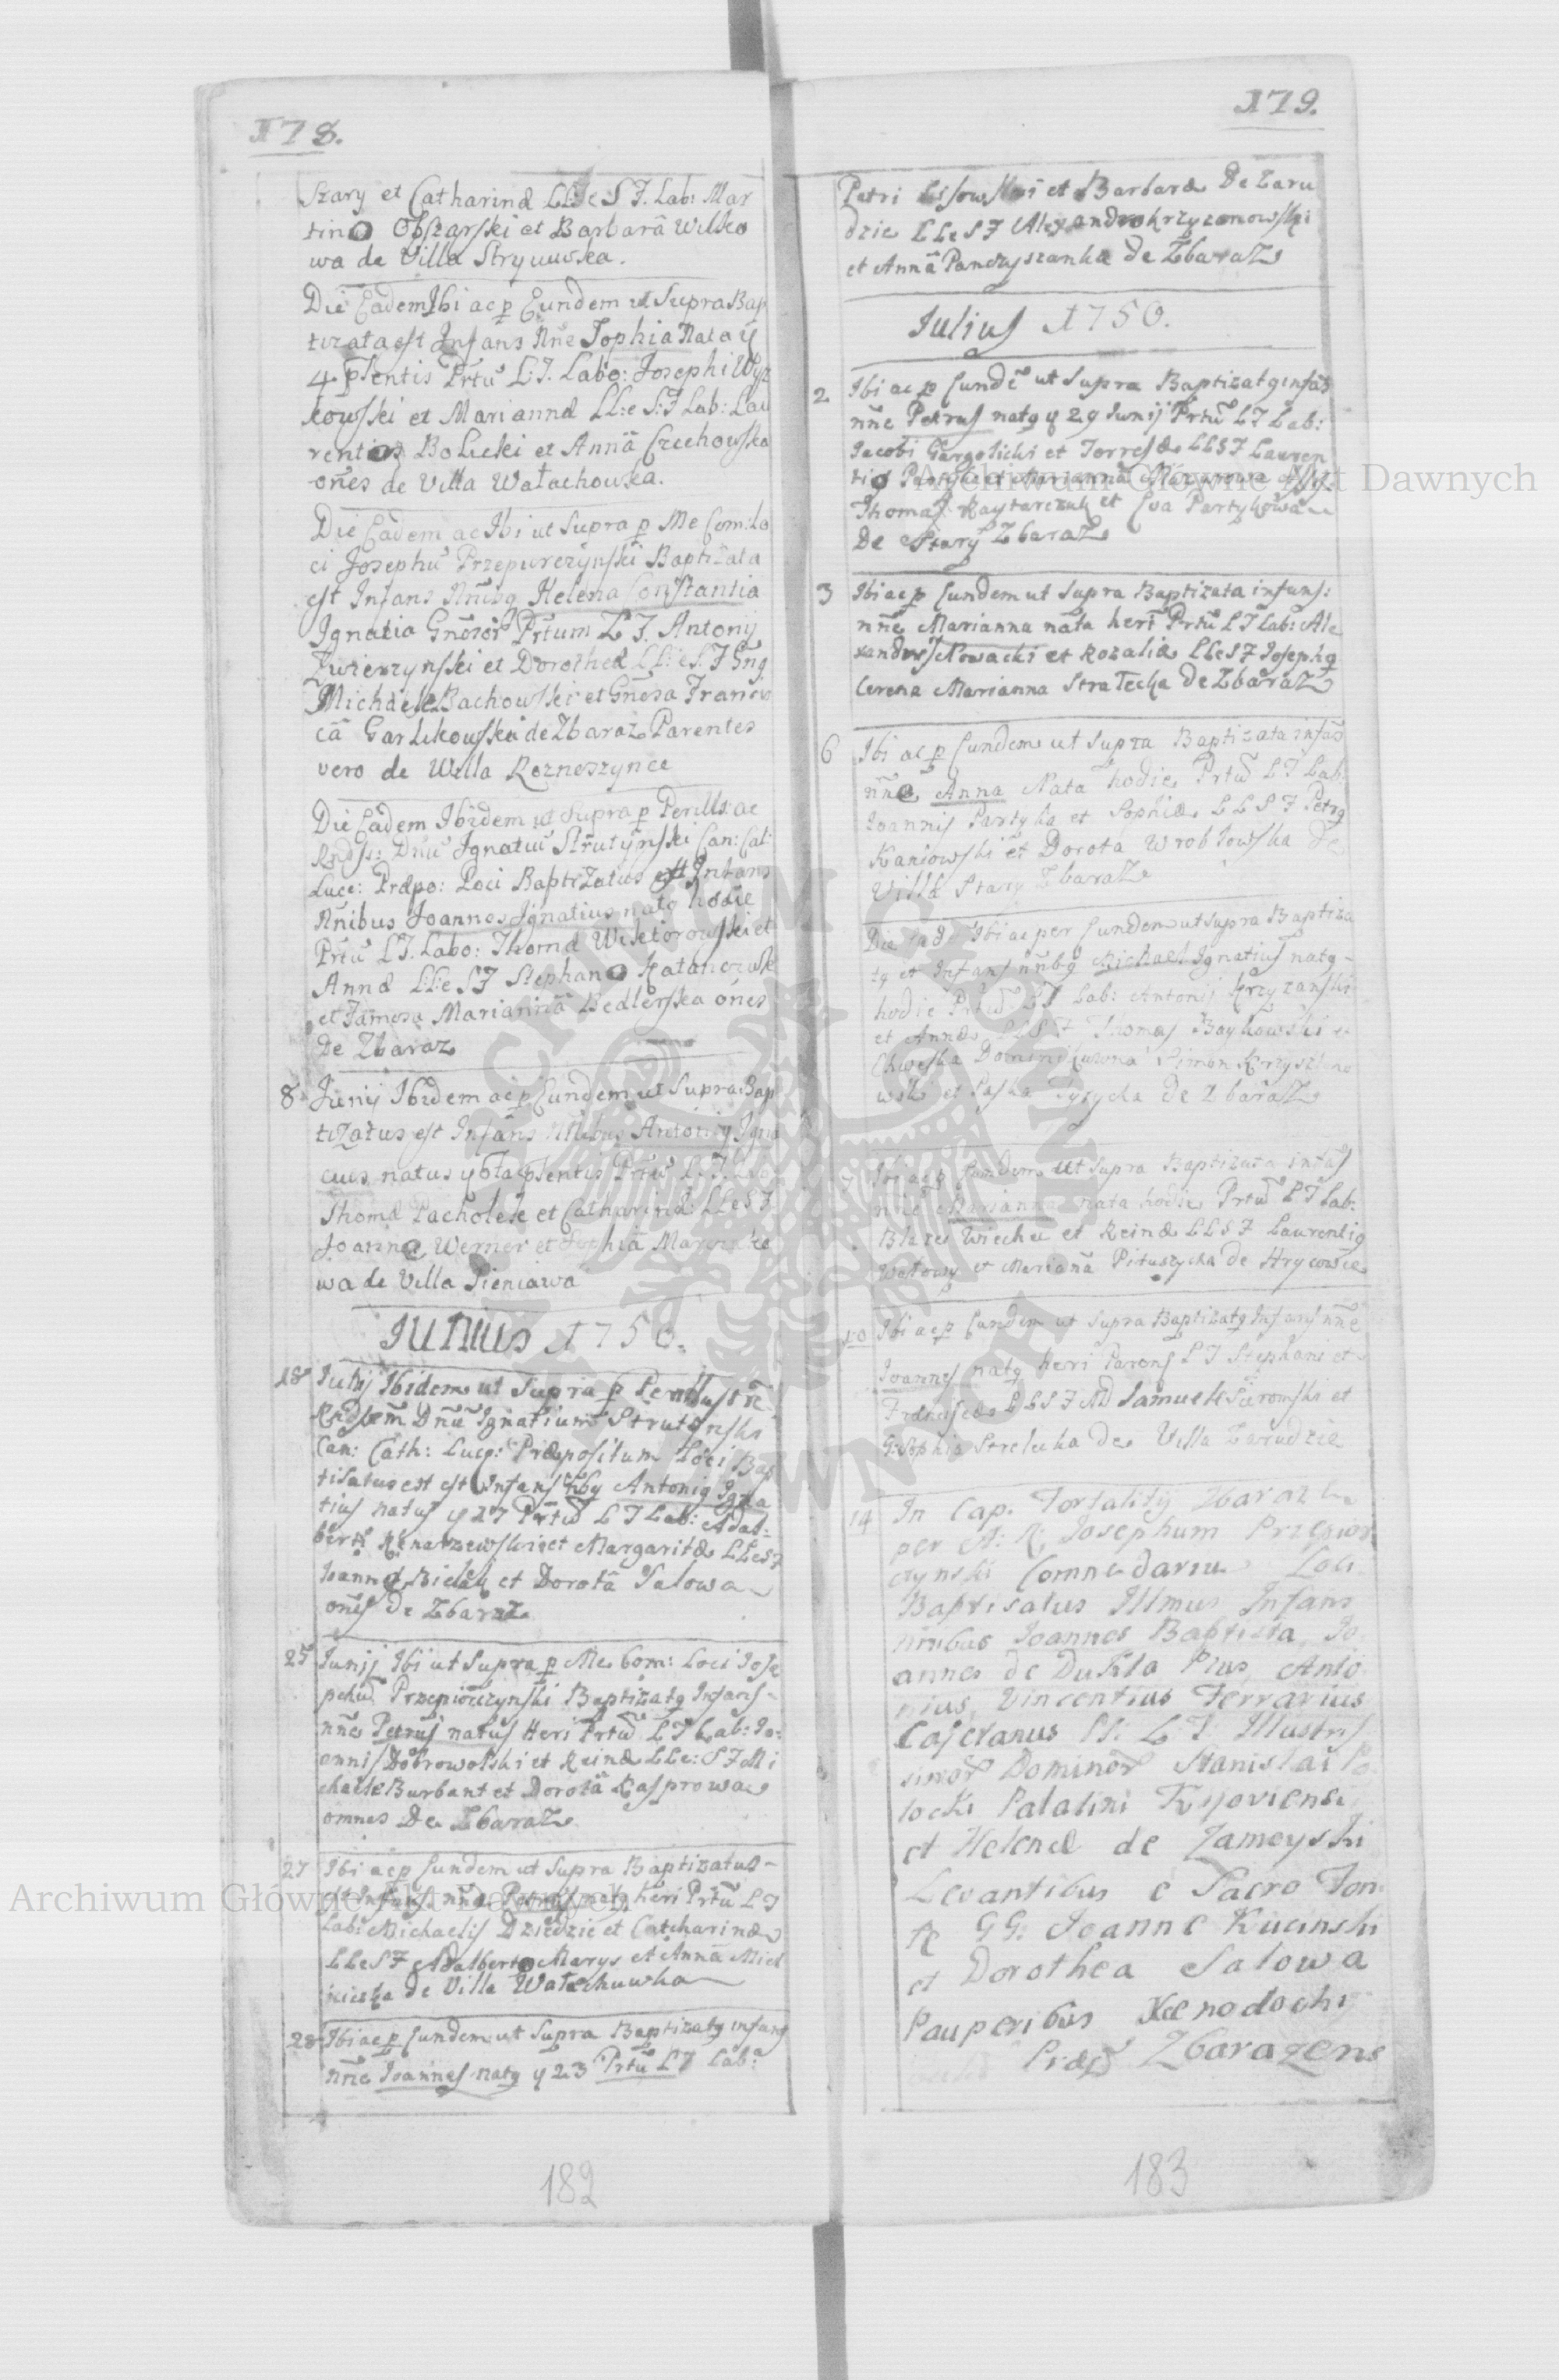 178.
Szary et Catharinæ LL:e S F. Lab: Mar
tino Obszarski et Barbarā Wilko
wa de Villa Stryiuwka.
Die Eadem Ibi ac p Eundem ut Supra Bap
tizata est Infans Nñe Sophia Nata ÿ
4 pſentis Prtũ L:T. Labo: Josephi Wyz
kowski et Mariannæ LL:e S:F Lab: Lau
rentio Bolicki et Annā Czechowska
oñes de Villa Wałachowka.
Die Eadem ac Ibi ut Supra p Me Com: Lo
ci Josephũ Przepiurczynski Baptizata
est Infans Nñibq Helena Constantia
Ignatia Gñosor Prtum L T. Antonij
Zwierzynski et Dorotheæ LL:e S. F Gñq
Michaele Bachowski et Gñosa Francis
cā Garlikowska de Zbaraz Parentes
vero de Willa Roznoszynce
Die Eadem Ibidem ut Supra p Perills: ac
Rndss: Dnũ Ignatiũ Strutynski Can: Cat:
Luce: Præpo: Loci Baptizatus est Infans
Nñibus Joannes Ignatius natq hodie
Prtũ L T. Labo: Thomæ Wiktorowski et
Annæ L:L:e S F Stephano Katanczuk
et Famosa Mariannā Bedlerska oñes
De Zbaraz
8 Junij Ibidem ac p Eundem ut Supra Bap
tizatus est Infans Nñibus Antonij Igna
cius natus y 6ta pſentis Prtũ L. T. Lab
Thomæ Pacholek et Catharinæ: LLeSF
Joanne Werner et Sophiā
wa de Villa Sieniawa
Junius 1750.
18 Junij Ibidem ut Supra p Perillustrẽ
Rndssem̃ Dnũ Ignatium Strutynski
Can: Cath: Luce: Præpositum Loci Bap
tisatus est est Infans nñbq Antoniq Igna
tius natus y 17 Prtũ L T Lab: Adal:
berti Kenarzewski et Margaritæ LLeSF
Joanne Bielak et Dorotā Salowa
oñes de Zbaraz
25 Junij Ibi ut Supra p Me Com: Loci Jose
pchũ Przepiorczynski Baptizatq Infans
nñe Petrus natus Heri Prtũ L T Lab: Jo:
annis Dobrowolski et Reinæ LLe: S F Mi
chaele Burbant et Dorotā Kasprowa
omnes De Zbaraz
27 Ibi ac p Eundem ut Supra Baptizatus
est Infans nñe Petrus natq heri Prtũ L T
Lab: Michaelis Dziedzic et Catcharinæ
LLeSF Adalberto Marys et Annā Miel
nicska de Villa Wałachuwka
28 Ibi ac p Eundem ut Supra Baptizatq infans
nñe Joannes natq y 23 Prtũ L T Lab:
182
179.
Petri Lisowski et Barbaræ De Zaru
dzie LLeSF Alexandro Krzyzanowski
et Annā Panczyszanka De Zbaraz
Julius 1750.
2 Ibi ac p Eundẽ ut Supra Baptizatq infās
nñe Petrus natq y 29 Junij Prtũ L T Lab:
Jacobi Gargolicki et Terresæ LLSF Lauren
tio Partyka et Mariannā Mazurowa Assis:
Thomas Raytarczuk et Eva Partykowa
De Stary Zbaraz
3 Ibi ac p Eundem ut Supra Baptizata infans:
nñe Marianna nata heri Prtũ L T Lab: Ale
xandri Nowacki et Rozaliæ LLeSF Josephq
Cerena Marianna Stratecka De Zbaraz
6 Ibi ac p Eundem ut Supra Baptizata infās
nñe Anna Nata hodie Prtũ L T Lab:
Joannis Partyka et Sophiæ LLSF Petrq
Kaniowski et Dorota Wroblowska De
Villa Stary Zbaraz
Die Ead: Ibi ac per Eundem ut Supra Baptiza
tq et Infans nñbq Michael Ignatius natq
hodie Prtũ L T Lab: Antonij Krzyzanski
et Annæ LLSF Thomas Baykowski et
Dominikuwna Simon Krzyszt
wski et de Zbaraz
7 Ibi ac p Eundem ut Supra Baptizata infās
nñe Marianna nata hodie Prtũ L T Lab:
Blazei Wiecheć et Reinæ LLSF Laurentiq
Wołowy et Marianā Pituszycka de Hrycowce
10 Ibi ac p Eundem ut Supra Baptizatq Infans nñe
Joannes natq heri Parens L T Stephani et
Franciscæ LLSF AD Samuele Surowski et
G: Sophia Strelecka De Villa Zarudzie
14 In Cap. Fortalitij Zbaraz
per A: R. Josephum Przepior
czynski Comēdariũ Loci
Baptisatus Illmus Infans
nnibus Joannes Baptista, Jo
annes de Dukla Pius, Anto
nius, Vincentius Ferrarius
Cajetanus Fl: L T. Illustris
simor Dominor Stanislai Po
tocki Palatini Kijoviensi
et Helenæ de Zamoyski
Levantibus e Sacro Fon
te GG: Joanne Kucinski
et Dorothea Salowa
Pauperibus Xenodochij
Præp Zbarazens
183
Archiwum Główne Akt Dawnych
Archiwum Główne Akt Dawnych
ARCHIWUM GŁÓWNE AKT DAWNYCH